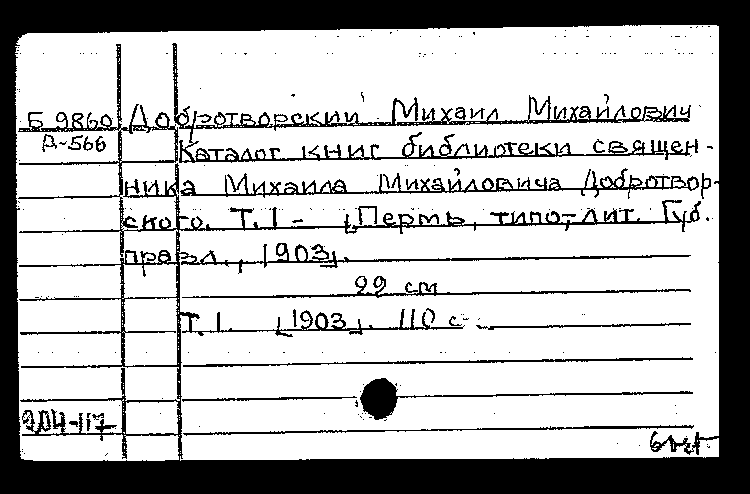 Б 9860 Добротворский Михаил Михайлович
Д-566
Каталог книг библиотеки священ-
ника Михаила Михайловича Добротвор-
ского. Т. 1 - [Пермь, типо-лит. Губ.
правл., 1903].
22 см
Т. 1. [1903]. 110 с.